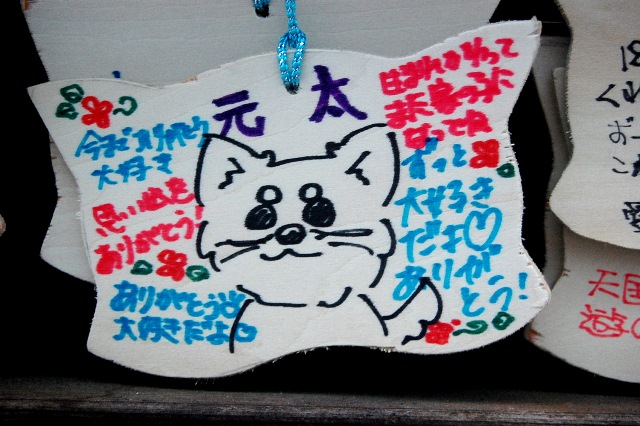 元太
今までありがとう
大好き
思い出を
ありがとう!
ありがとう
大好きだよ
生まれかわって
また家の子に
なってね
ずっと
大好き
だよ♡
ありが
とう!
天国